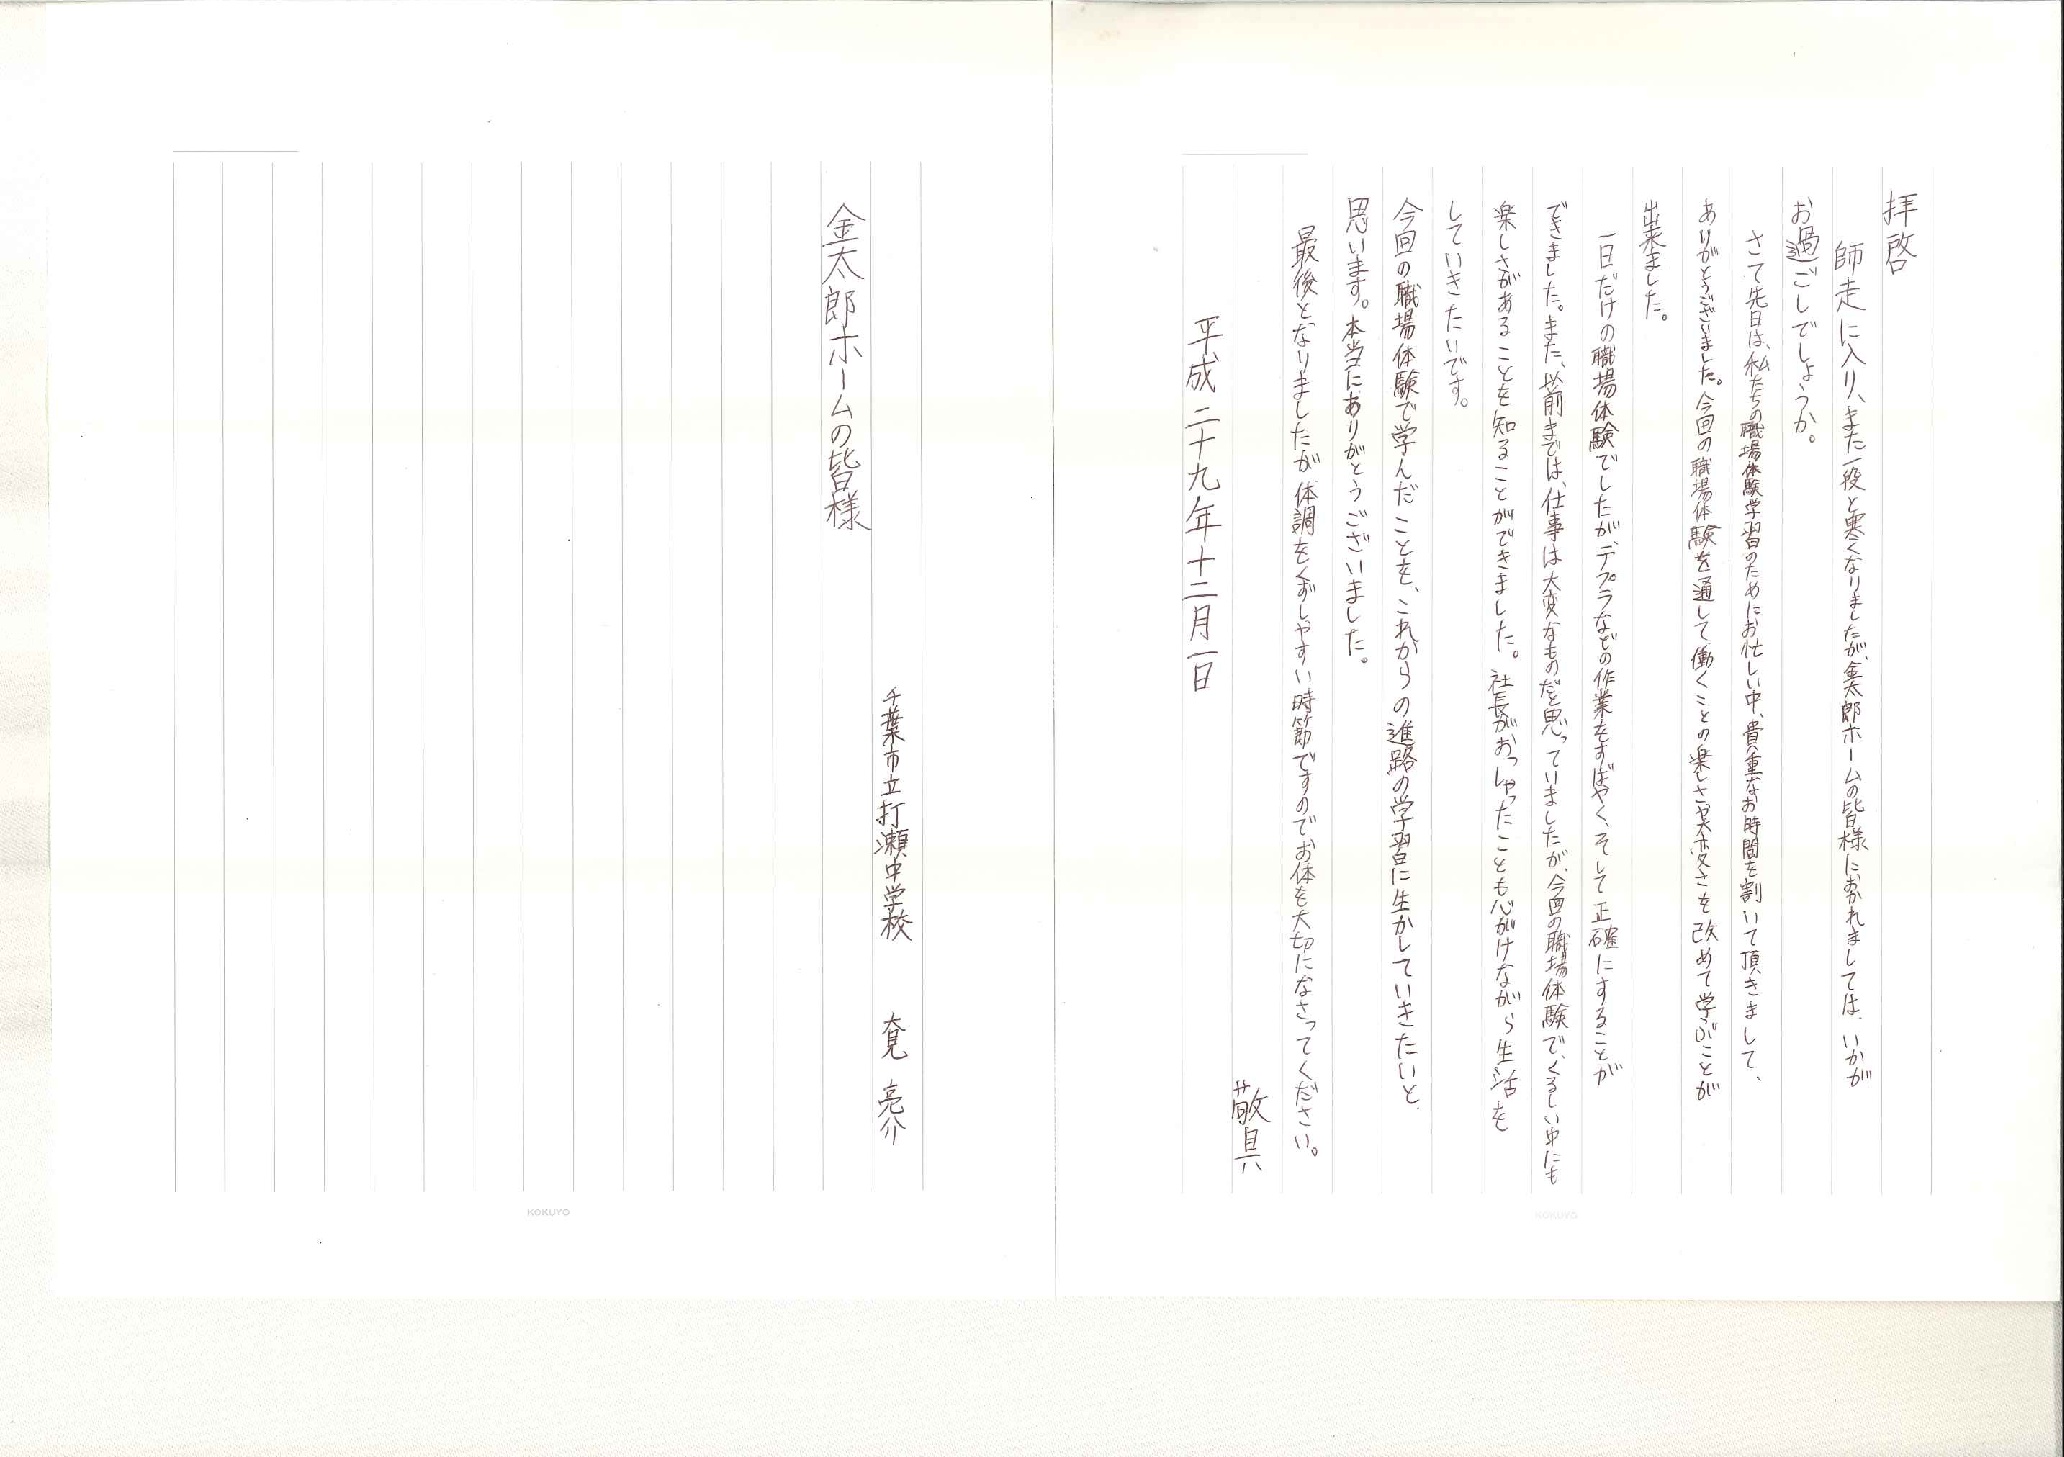 拝啓
師走に入り、また一段と寒くなりましたが、金太郎ホームの皆様におかれましては、いかが
お過ごしでしょうか。
さて先日は、私たちの職場体験学習のためにお忙しい中、貴重なお時間を割いて頂きまして、
ありがとうございました。今回の職場体験を通して働くことの楽しさや大変さを改めて学ぶことが
出来ました。
一日だけの職場体験でしたがデプラなどの作業をすばやく、そして正確にすることが
できました。また、以前までは、仕事は大変なものだと思っていましたが、今回の職場体験で、くるしい中にも
楽しさがあることを知ることができました。社長がおっしゃったことも心がけながら生活を
していきたいです。
今回の職場体験で学んだことを、これからの進路の学習に生かしていきたいと
思います。本当にありがとうございました。
最後となりましたが体調をくずしやすい時節ですのでお体を大切になさってください。
敬具
平成二十九年十二月一日
千葉市立打瀬中学校 亮介
金太郎ホームの皆様
KOKUYO
KOKUYO